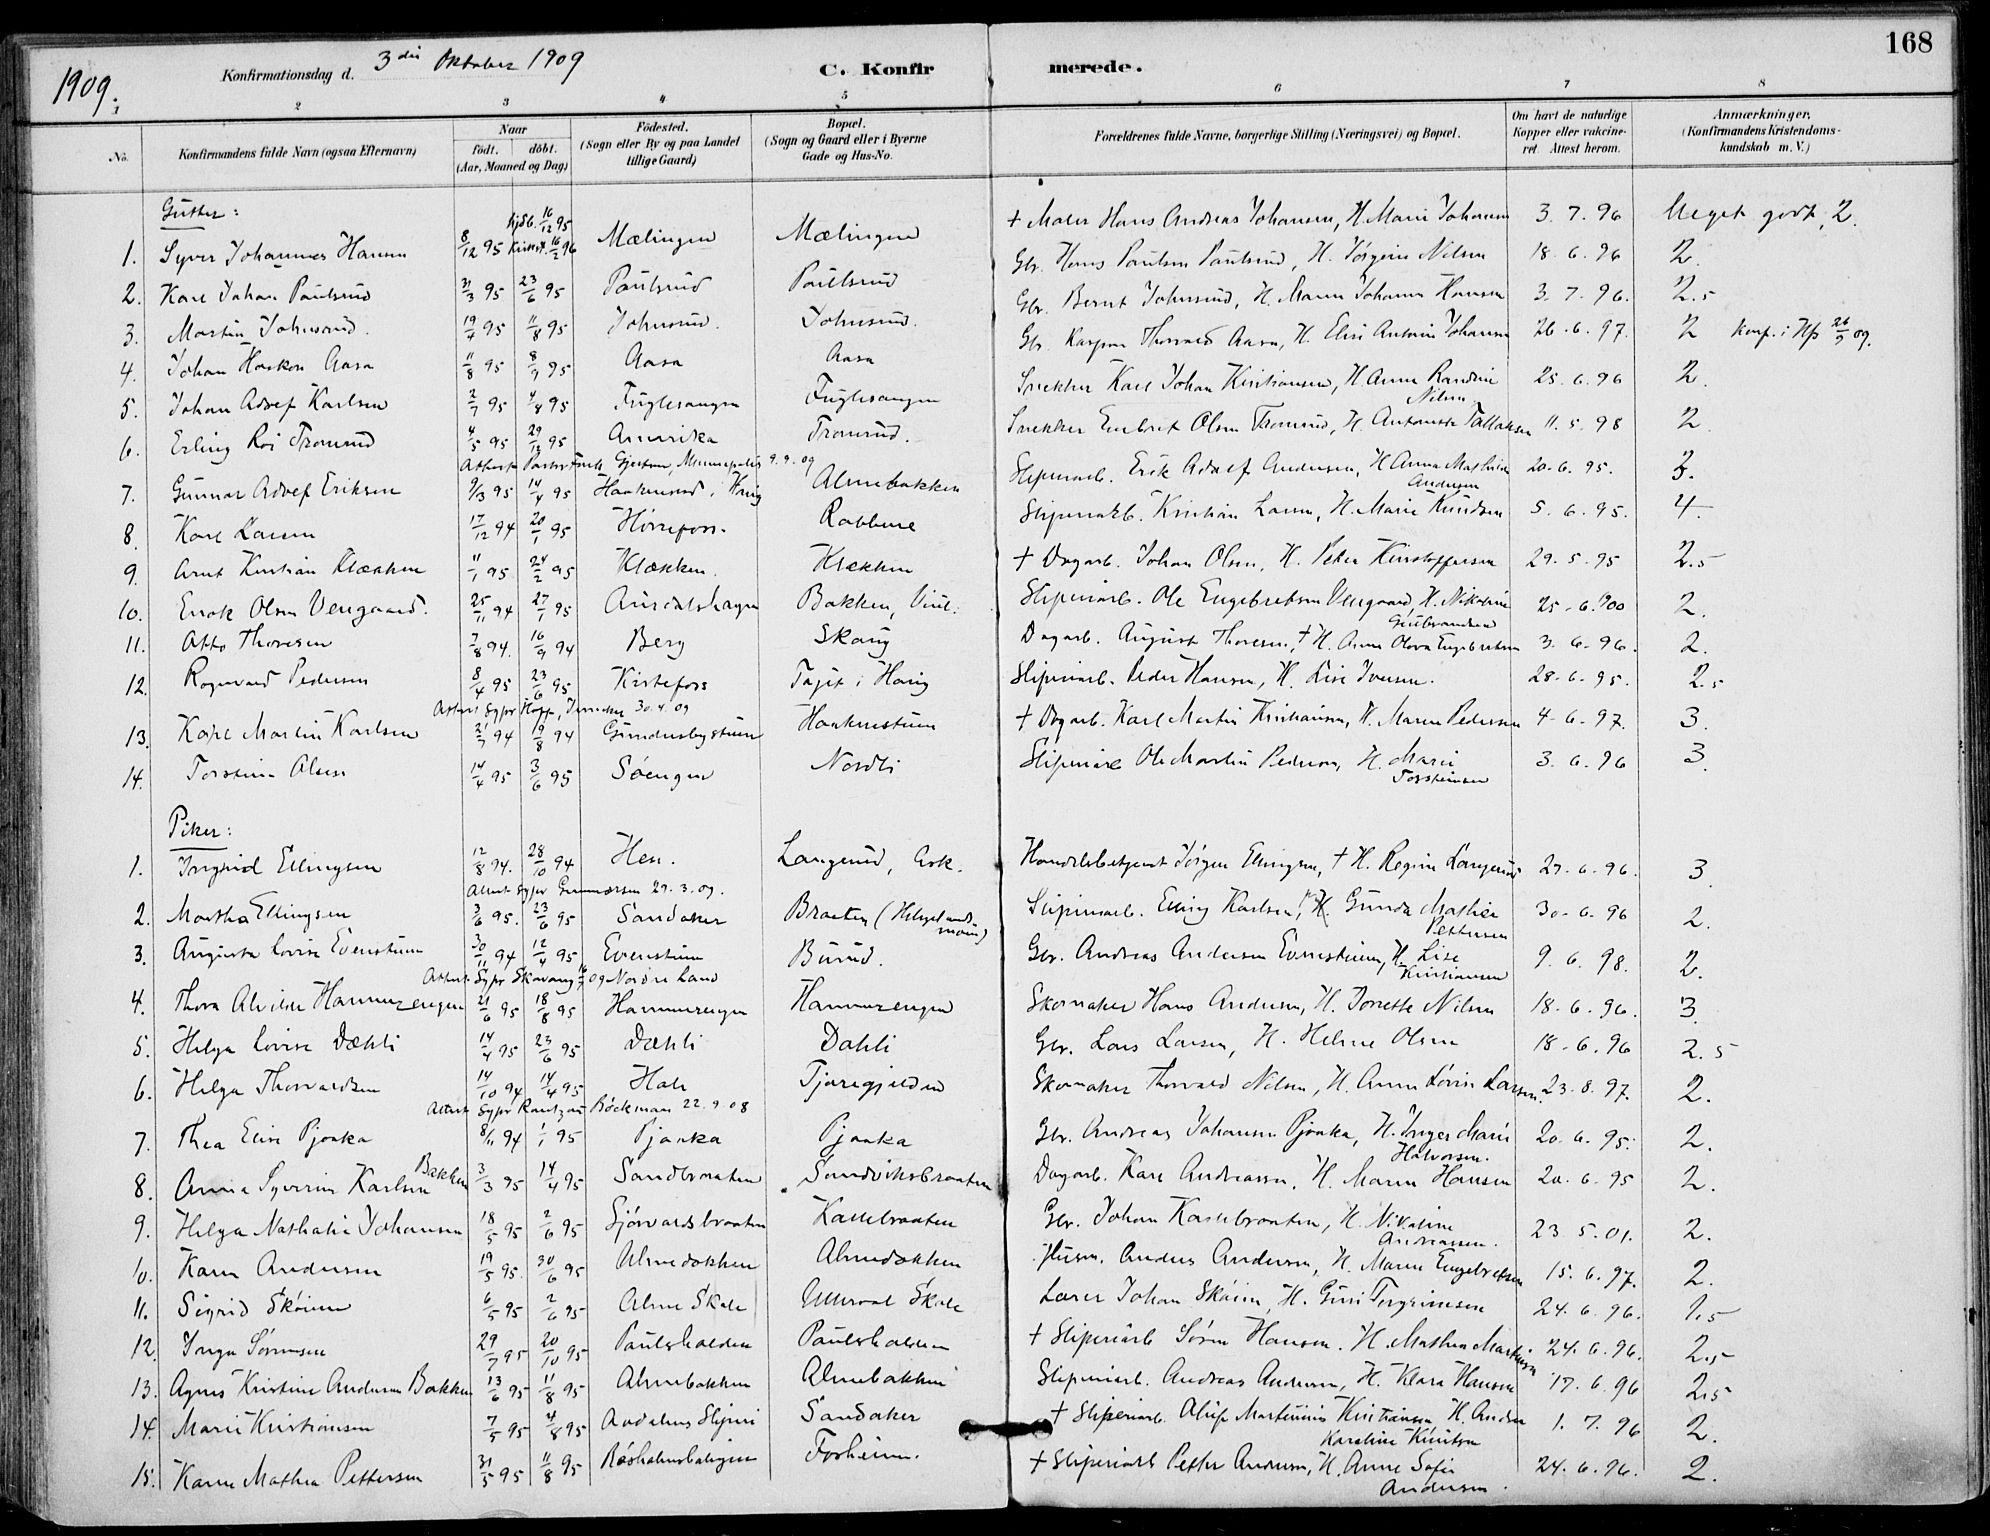 168
1909.
Konfirmationsdag d. 3die Oktober 1909
C. Konfirmerede.
1 2 3 4 5 6 7 8
No.
Konfirmandens fulde Navn (ogsaa Efternavn)
Naar
födt. döbt.
(Aar, Maaned og Dag)
Födested.
(Sogn eller By og paa Landet
tillige Gaard)
Bopæl.
(Sogn og Gaard eller i Byerne
Gade og Hus-No.
Forældrenes fulde Navne, borgerlige Stilling (Næringsvei) og Bopæl.
Om havt de naturlige
Kopper eller vakcine-
ret. Attest herom.
Anmærkninger.
(Konfirmandens Kristendoms-
kundskab m. V.)
Gutter:
hjdb. 16/12 95
1. Syver Johannes Hansen 8/12 95 Kirkest. 16/2 96 Mælingen Mælingen + Maler Hans Andreas Johansen, H. Marie Johansen 3. 7. 96 Meget godt, 2.
2. Karl Johan Paulsrud 31/3 95 23/6 95 Paulsrud Paulsrud Gbr. Hans Paulsen Paulsrud, H. Jørgine Nilsen 18. 6. 96 2.
3. Martin Johnsrud. 19/4 95 11/8 95 Johnsrud. Johnsrud. Gbr. Bernt Johnsrud, H. Maren Johanne Hansen 3. 7. 96. 2.5
4. Johan Haakon Aasa 11/8 95 8/9 95 Aasa Aasa Gbr. Kasper Thorvald Aasa, H. Elise Antonie Johansen 26. 6. 97. 2 Konf. i Hfs 26/9 09.
5. Johan Adolf Karlsen 2/7 95 4/8 95 Fuglesangen Fuglesangen Snekker Karl Johan Kristiansen, H. Anne Randine
Nilsen 25. 6. 96 2.
6. Erling Roi Tronrud 4/5 95 29/12 95 Amerika Tronrud. Snekker Embret Olsen Tronrud, H. Antonette Tollefsen 11. 5. 98 2.
Attest Pastor Gjertsen, Minneapolis 9. 9. 09
7. Gunnar Adolf Eriksen 9/3 95 14/4 95 Haakenrud, Haug Almebakken Sliperiarb. Erik Adolf Andersen, H. Anna Mathilde
Andersen 20. 6. 95. 3.
8. Karl Larsen 17/12 94 20/1 95 Hønefoss. Rabbene Sliperiarb. Kristian Larsen, H. Marie Knudsen 5. 6. 95. 4.
9. Arnt Kristian Klækken 11/1 95 24/2 95 Klækken. Klækken + Dagarb. Johan Olsen, H. Petra Kristoffersen 29. 5. 95 2.5
10. Enok Olsen Vengaard. 25/11 94 27/1 95 Aurdalshagen Bakken, Viul. Sliperiarb. Ole Engebretsen Vengaard, H. Nikoline
Gulbrandsen 25. 6. 900 2.
11. Otto Thoresen 7/8 94. 16/9 94 Berg Skaug Dagarb. August Thoresen, + H. Anne Olava Engebretsen 3. 6. 96. 2.
12. Ragnvard Pedersen 8/4 95 23/6 95 Kistefoss Taget i Haug Sliperiarb. Peder Hansen, H. Lise Iversen. 28. 6. 95. 2.5
Attest Sgpr Hoff, Jevnaker 30. 4. 09
13. Karl Martin Karlsen 21/7 94 19/8 94 Gundersbystuen Haakenstuen + Dagarb. Karl Martin Kristiansen, H. Maren Pedersen 4. 6. 97. 3.
14. Torstein Olsen 14/4 95 3/6 95 Søengen Nordli Sliperiarb. Ole Martin Pedersen, H. Marie
Torsteinsen 3. 6. 96 3.
Piker:
1. Ingrid Ellingsen 12/8 94. 28/10 94 Hen. Langerud, Ask. Handelsbetjent Jørgen Ellingsen, + H. Regine Langerud 27. 6. 96. 3.
Attest Sgpr Gunnarsen 29. 3. 09.
2. Martha Ellingsen 3/6 95. 23/6 95 Sandaker Braaten (Helgelands-
moen) Sliperiarb. Elling Karlsen, H. Gunda Mathea
Pettersen 30. 6. 96 2.
3. Augusta Lovise Evenstuen 30/11 94 12/4 95 Evenstuen Burud. Gbr. Andreas Andersen Evenstuen, H. Lise
Kristiansen 9. 6. 98. 2.
Attest Sgpr Skavang 09 Nordre Land
4. Thora Alvilde Hammerengen 21/6 95 18/8 95 Hammerengen Hammerengen Skomaker Hans Andersen, H. Dorette Nilsen 18. 6. 96. 3.
5. Helga Lovise Dæhli 14/4 95 23/6 95 Dæhli Dæhli Gbr. Lars Larsen, H. Helene Olsen 18. 6. 96 2.5
6. Helga Thorvaldsen 14/10 94 14/4 95 Hole Tjøregjelden Skomaker Thorvald Nilsen, H. Anne Lovise Larsen. 23. 8. 97. 2.
Attest Sgpr Rantzau Bøckman 22. 9. 08
7. Thea Elise Pjaaka 8/11 94 1/1 95 Pjaaka Pjaaka Gbr. Andreas Johansen Pjaaka, H. Inger Marie
Halvorsen. 20. 6. 95. 2.
8. Anna Syverine Karlsen Bakken 3/3 95 14/4 95 Sandbraaten Sandviksbraaten Dagarb. Karl Andreassen, H. Maren Hansen 20. 6. 95 2.
9. Helga Nathalie Johansen 18/5 95 2/6 95 Sjørvardsbraaten Kassebraaten Gbr. Johan Kassebraaten, H. Nikoline
Andreassen. 23 5. 01. 2.
10. Karen Andersen 19/5 95. 30/6 95 Almebakken Almebakken Husm. Anders Andersen, H. Maren Engebretsen 15. 6. 97. 2.
11. Sigrid Skøien 6/5 95 2/6 95 Alme Skole Ulleraal Skole Lærer Johan Skøien, H. Guri Torgrimsen 24. 6. 96. 1.5
12. Inga Sørensen 29/7 95 20/10 95 Paulshalden Paulshalden + Sliperiarb Søren Hansen. H. Mathea Martinsen 24. 6. 96. 2.5
13. Agnes Kristine Andersen Bakken 13/6 95 11/8 95 Almebakken Almebakken Sliperiarb. Andreas Andersen, H. Klara Hansen 17. 6. 96 2.5
14. Marie Kristiansen 7/5 95 4/8 95 Aadalens Sliperi Sandaker + Sliperiarb. Alef Martinius Kristiansen H. Andrea
Karoline Knutsen 1. 7. 96 2.
15. Karen Mathea Pettersen 31/5 95 11/8 95 Forheim. + Sliperiarb Petter Andersen, H. Anne Sofie
Andersen. 24. 6. 96. 2.